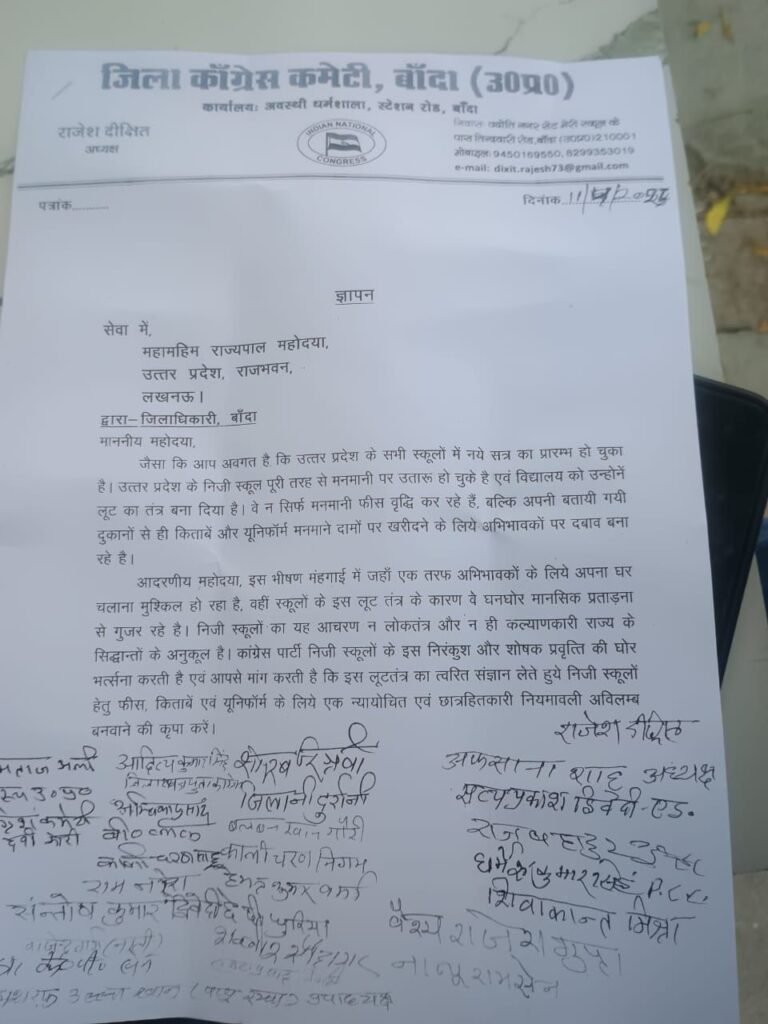 जिला काँग्रेस कमेटी, बाँदा (उ0प्र0)
कार्यालयः अवस्थी धर्मशाला, स्टेशन रोड, बाँदा
राजेश दीक्षित
अध्यक्ष
INDIAN NATIONAL CONGRESS
निवासः ज्योति नगर सेंट मैरी स्कूल के
पास तिन्दवारी रोड, बाँदा (उ0प्र0) 210001
मोबाइलः 9450169550, 8299353019
e-mail: dixit.rajesh73@gmail.com
पत्रांक............
दिनांक. 11/
ज्ञापन
सेवा में,
महामहिम राज्यपाल महोदया,
उत्तर प्रदेश, राजभवन,
लखनऊ।
द्वारा– जिलाधिकारी, बाँदा
माननीय महोदया,
जैसा कि आप अवगत है कि उत्तर प्रदेश के सभी स्कूलों में नये सत्र का प्रारम्भ हो चुका
है। उत्तर प्रदेश के निजी स्कूल पूरी तरह से मनमानी पर उतारू हो चुके है एवं विद्यालय को उन्होनें
लूट का तंत्र बना दिया है। वे न सिर्फ मनमानी फीस वृद्धि कर रहे हैं, बल्कि अपनी बतायी गयी
दुकानों से ही किताबें और यूनिफॉर्म मनमाने दामों पर खरीदने के लिये अभिभावकों पर दबाव बना
रहे है।
आदरणीय महोदया, इस भीषण मंहगाई में जहाँ एक तरफ अभिभावकों के लिये अपना घर
चलाना मुश्किल हो रहा है, वहीं स्कूलों के इस लूट तंत्र के कारण वे घनघोर मानसिक प्रताड़ना
से गुजर रहे है। निजी स्कूलों का यह आचरण न लोकतंत्र और न ही कल्याणकारी राज्य के
सिद्धान्तों के अनुकूल है। कांग्रेस पार्टी निजी स्कूलों के इस निरंकुश और शोषक प्रवृत्ति की घोर
भर्त्सना करती है एवं आपसे मांग करती है कि इस लूटतंत्र का त्वरित संज्ञान लेते हुये निजी स्कूलों
हेतु फीस, किताबें एवं यूनिफॉर्म के लिये एक न्यायोचित एवं छात्रहितकारी नियमावली अविलम्ब
बनवाने की कृपा करें।
राजेश दीक्षित
आदित्य कुमार सिंह
अफसाना शाह अध्यक्ष
जिलानी दुर्रानी
सत्यप्रकाश द्विवेदी-एड.
राज बहादुर
काली चरण निगम
शिवाकान्त मिश्रा
सन्तोष कुमार द्विवेदी
वैश्य राजेश गुप्ता
नाथूराम सेन
उपाध्यक्ष